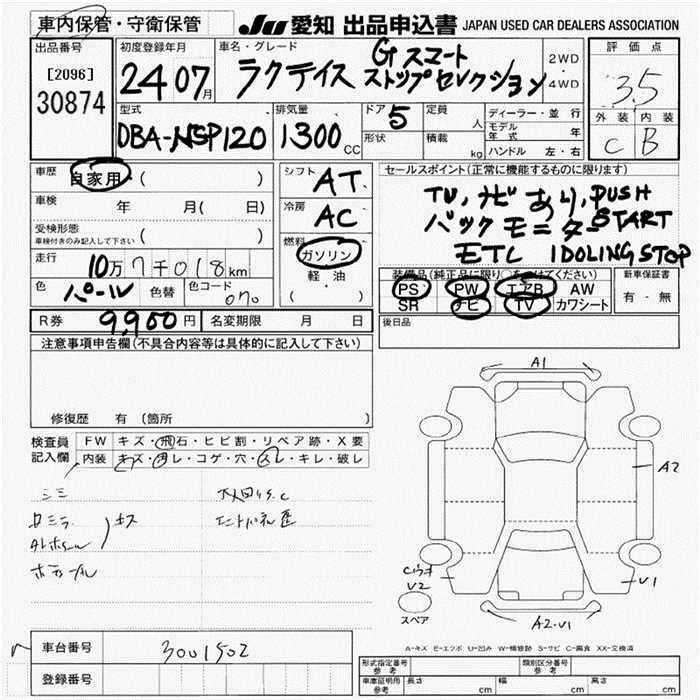 車内保管・守衛保管
JU 愛知 出品申込書 JAPAN USED CAR DEALERS ASSOCIATION
出品番号
[2096]
30874
初度登録年月
24 07月
車名・グレード
ラクティス Gスマート ストップセレクション
2WD・4WD
評価点
3.5
外装 内装
C B
型式
DBA-NSP120
排気量
1300 CC
ドア 5
形状
定員 人
積載 kg
ディーラー・並行
モデル年式 年
ハンドル 左・右
車歴 自家用 ( )
車検 年 月( 日)
受検形態
車検付きのみ記入して下さい ( )
走行 10万7千018km
色 パール 色替 色コード 070
R券 9,900円 名変期限 月 日
シフト AT
冷房 AC
燃料 ガソリン・軽・油 ( )
セールスポイント(正常に機能するものに限ります)
TV,ナビあり,PUSH
バックモニターSTART
ETC IDOLINGSTOP
装備品(純正品に限り○をつけてください)
PS PW エアB AW
SR ナビ TV カワシート
新車保証書
有・無
後日品
注意事項申告欄(不具合内容等は具体的に記入して下さい)
修復歴 有 (箇所 )
検査員記入欄
FW キズ・飛石・ヒビ割・リペア跡・X要
内装 キズ・汚レ・コゲ・穴・スレ・キレ・破レ
キズ
A1
A2
Cウキ
V2
V1
A2・V1
スペア
A-キズ E-エクボ U-凹み W-補修跡 S-サビ C-腐食 XX-交換済
車台番号 3001502
登録番号
型式指定番号 参考
類別区分番号 参考
車庫証明用 参考 長さ cm 幅 cm 高さ cm